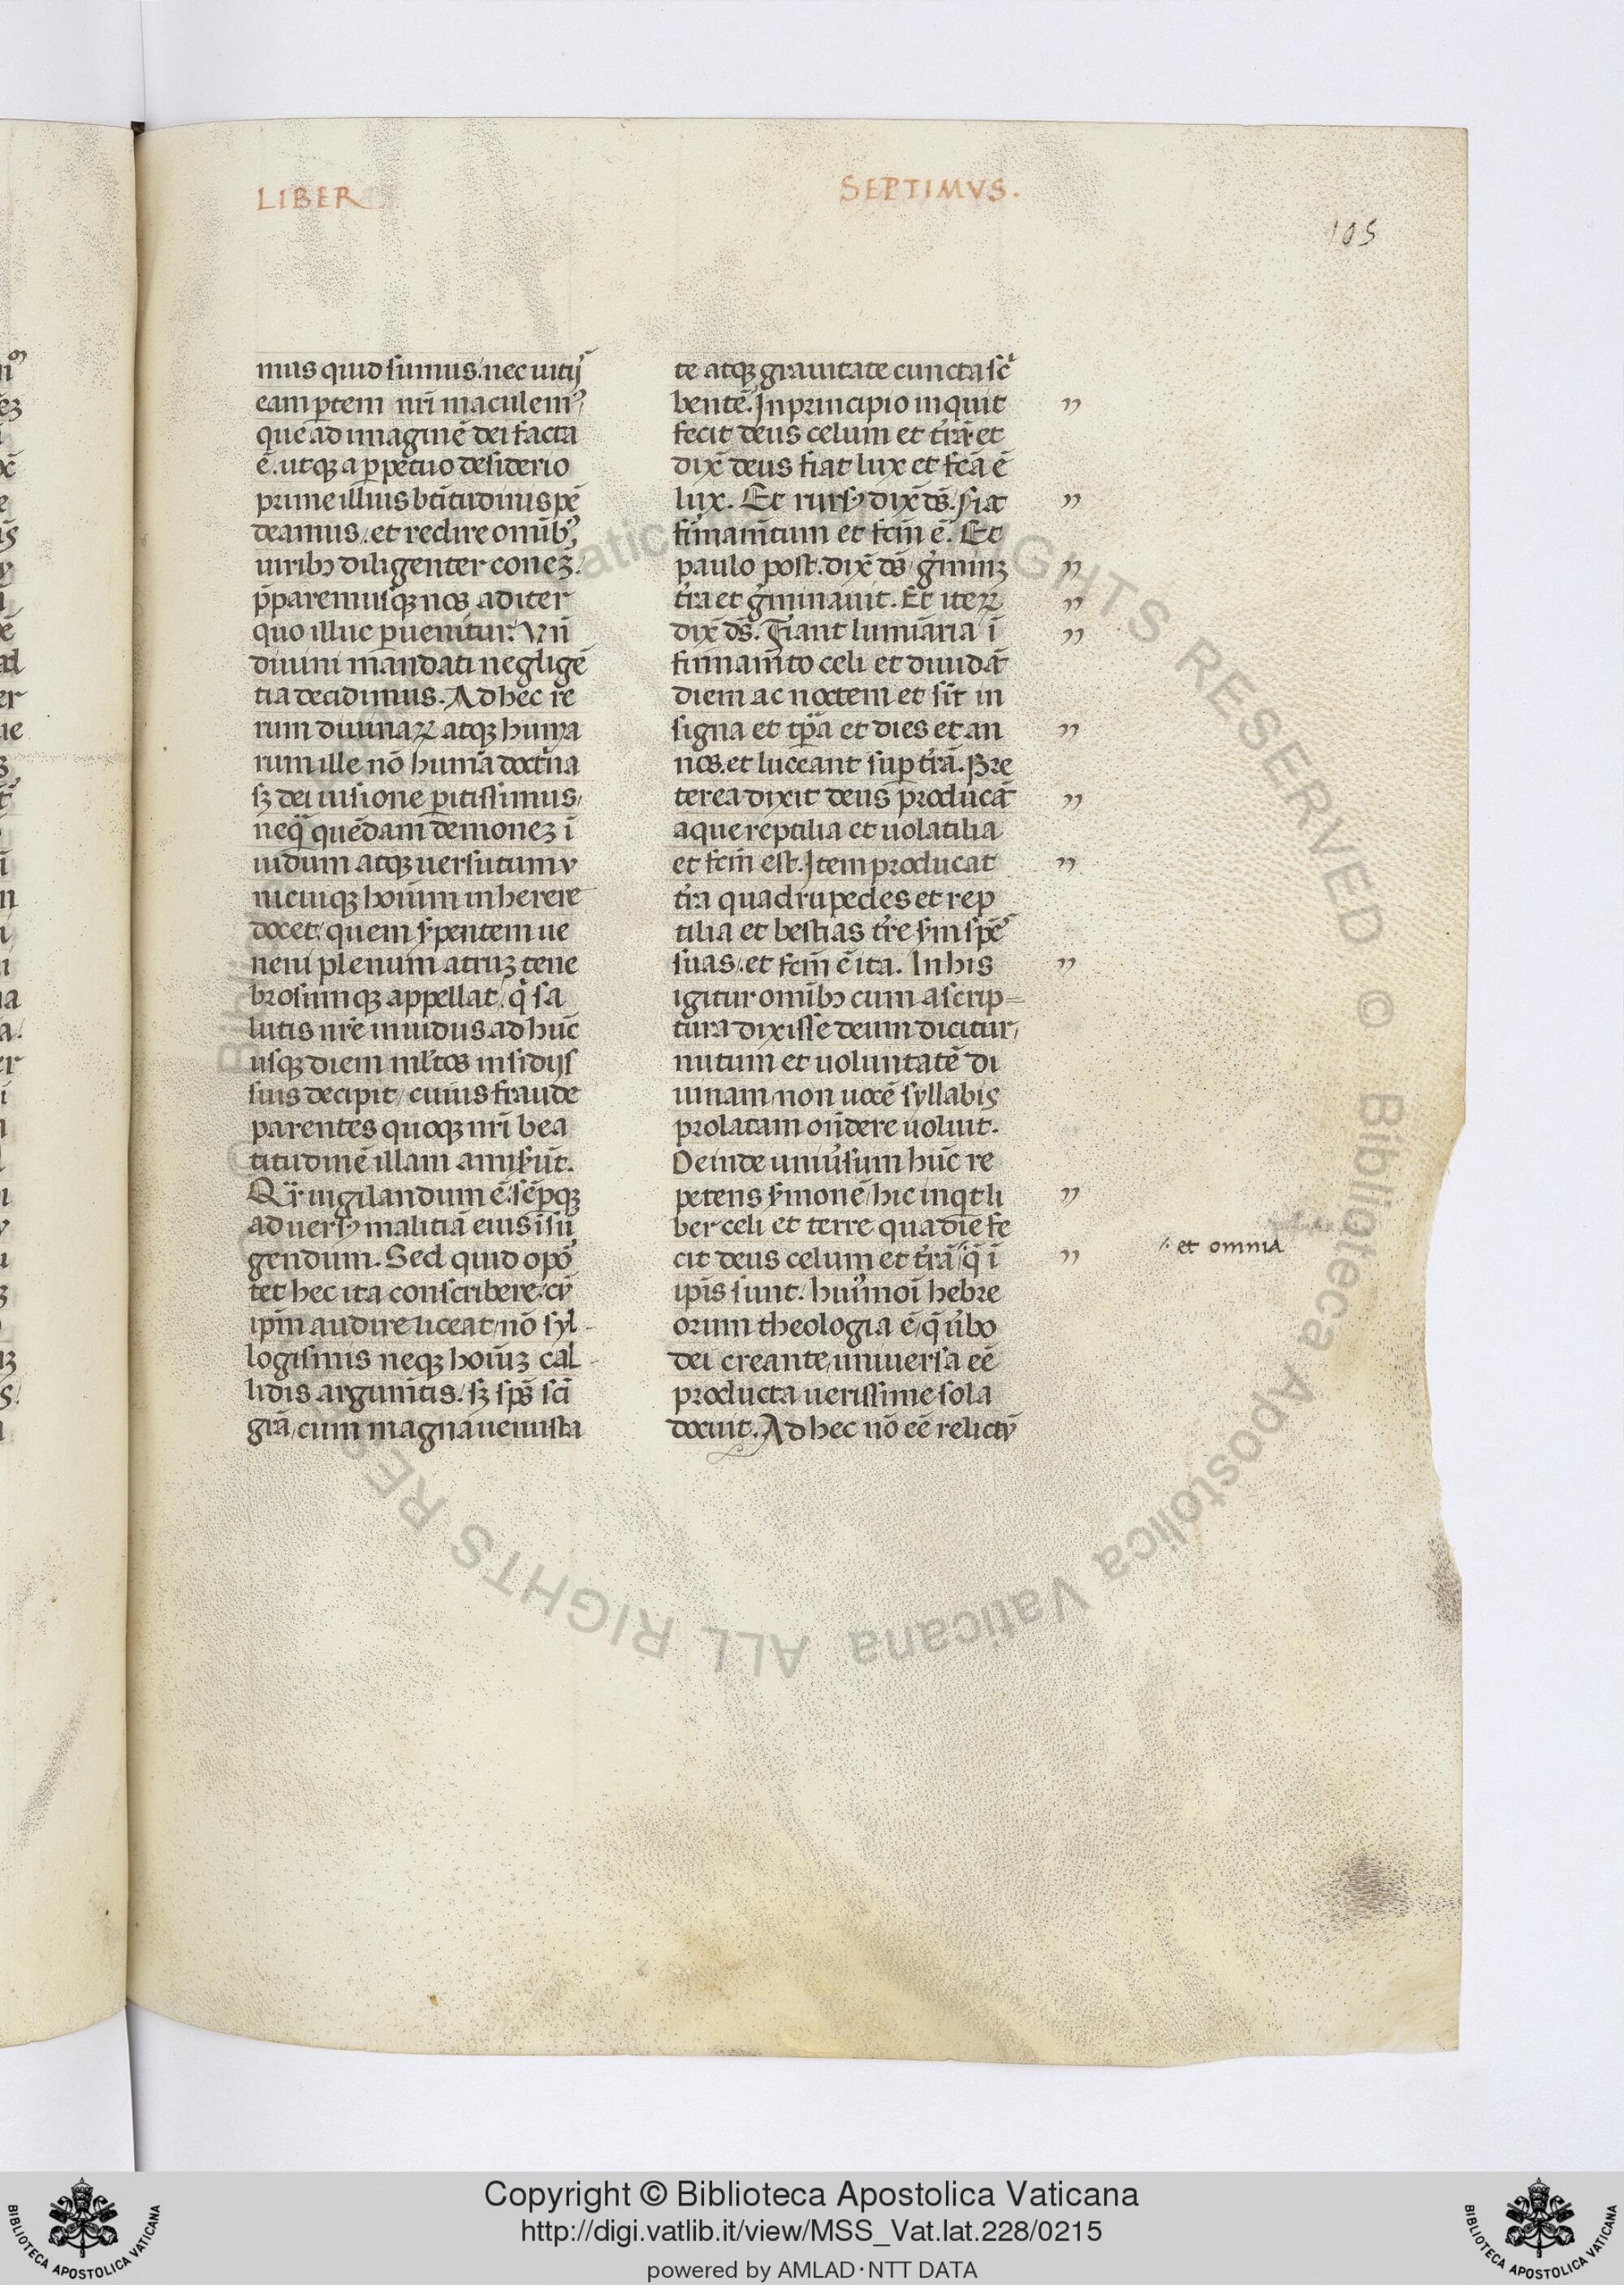 LIBER
SEPTIMVS.
105
mus quid sumus. nec uitijˢ
eam ꝑtem nr̄i maculemꝰ/
quē ad imaginē dei facta
ē. utqꝫ a ꝑpetuo desiderio
prime illius bt̄itudinis pē
deamus. et redire omībꝰ
uiribꝫ diligenter coneꝫ.
p̄paremusqꝫ nos ad iter
quo illuc ꝑuenitur. Vn̄
diuini mandati negligē
tia decidimus. Ad hec re
rum diuinaꝝ atqꝫ huma
rum ille nō humā doctⁱna
sꝫ dei uisione ꝑitissimus/
neqᷓ quēdam demoneꝫ ī
uidum atqꝫ uersutum v
nicuiqꝫ hoīum inherere
docet/ quem ẏpentem ue
neni plenum atruꝫ tene
brosumqꝫ appellat/ qⁱ sa
lutis nr̄e inuidus ad hūc
usqꝫ diem ml̄tos insidijs
suis decipit/ cuius fraude
parentes quoqꝫ nr̄i bea
titudinē illam amiẏūt.
Qr̄ uigilandum ē. sēꝑqꝫ
ad uersꝰ malitiā eius īsū
gendum. Sed quid opoꝰ
tet hec ita conscribere. cȳ
ip̄m audire liceat/ nō syl-
logismis neqꝫ hoīuꝫ cal-
lidis argum̄tis. sꝫ sp̄s sc̄i
gr̄a/ cum magna uenusta
te atqꝫ grauitate cuncta scⁱ
bentē. In principio inquit
fecit deus celum et tr̄ā et
dix̄ deus fiat lux et fc̄a ē
lux. Et rursꝰ dix̄ ds̄. fiat
firmam̄tum et fcm̄ ē. Et
paulo post. dix̄ ds̄/ gⁱminꝫ
tr̄a et gⁱminauit. Et iteꝝ
dix̄ ds̄. Fiant luminaria ī
firmam̄to celi et diuidāt
diem ac noctem et sīt in
signa et tp̄ra et dies et an
nos. et luceant suꝑ tr̄ā. Pre
terea dixit deus producāt
aque reptilia et uolatilia
et fcm̄ est. Item producat
tr̄a quadrupedes et rep
tilia et bestias tr̄e ẏm spēˢ
suas. et fcm̄ ē ita. In his
igitur omībꝫ cum a scrip=
tura dixisse deum dicitur/
nutum et uoluntatē di
uinam/ non uocē syllabis
prolatam on̄dere uoluit.
Deinde uniūsum hūc re
petens ẏmonē/ hic inqⁱt li
ber celi et terre qua die fe
cit deus celum et tr̄ā /. q̄ ī
ip̄is sunt. hui᷒moī hebre
orum theologia ē/ q̄ ūbo
dei creante/ uniuersa eē
producta uerissime sola
docuit. Ad hec nō eē relictȳ
/. et omnia
Copyright © Biblioteca Apostolica Vaticana
http://digi.vatlib.it/view/MSS_Vat.lat.228/0215
powered by AMLAD·NTT DATA